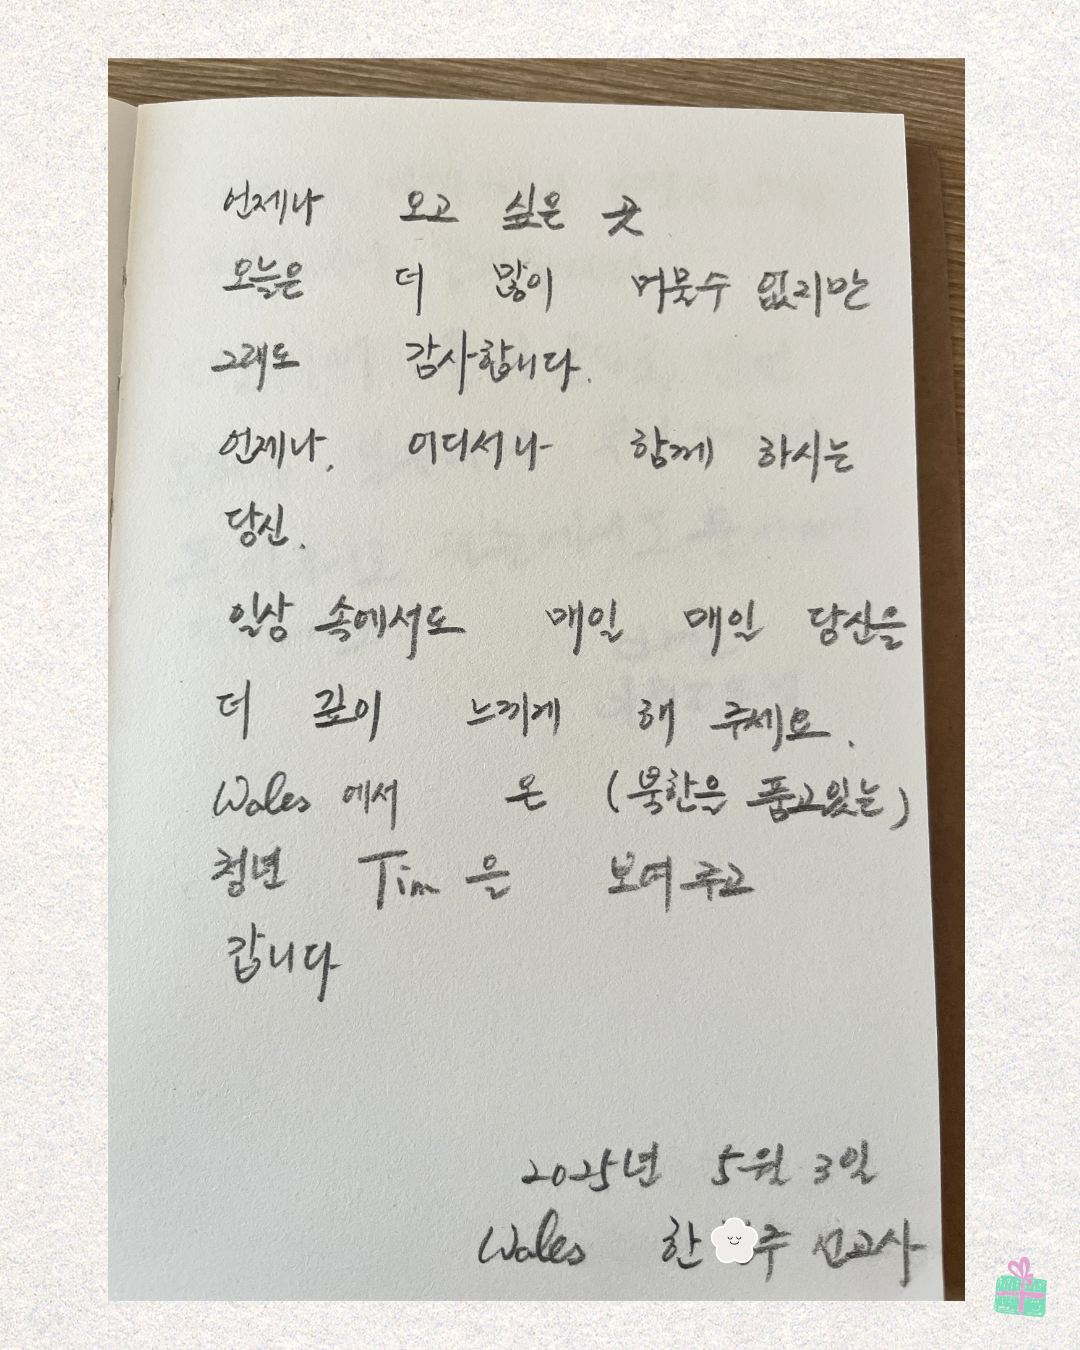 언제나 오고 싶은 곳
오늘은 더 많이 머뭇수 없지만
그래도 감사합니다.
언제나, 어디서나 함께 하시는
당신.
일상 속에서도 매일 매일 당신을
더 깊이 느끼게 해 주세요.
Wales 에서 온 (북한을 품고있는)
청년 Tim 을 보여주고
갑니다
2025년 5월 3일
Wales 한 주 선교사